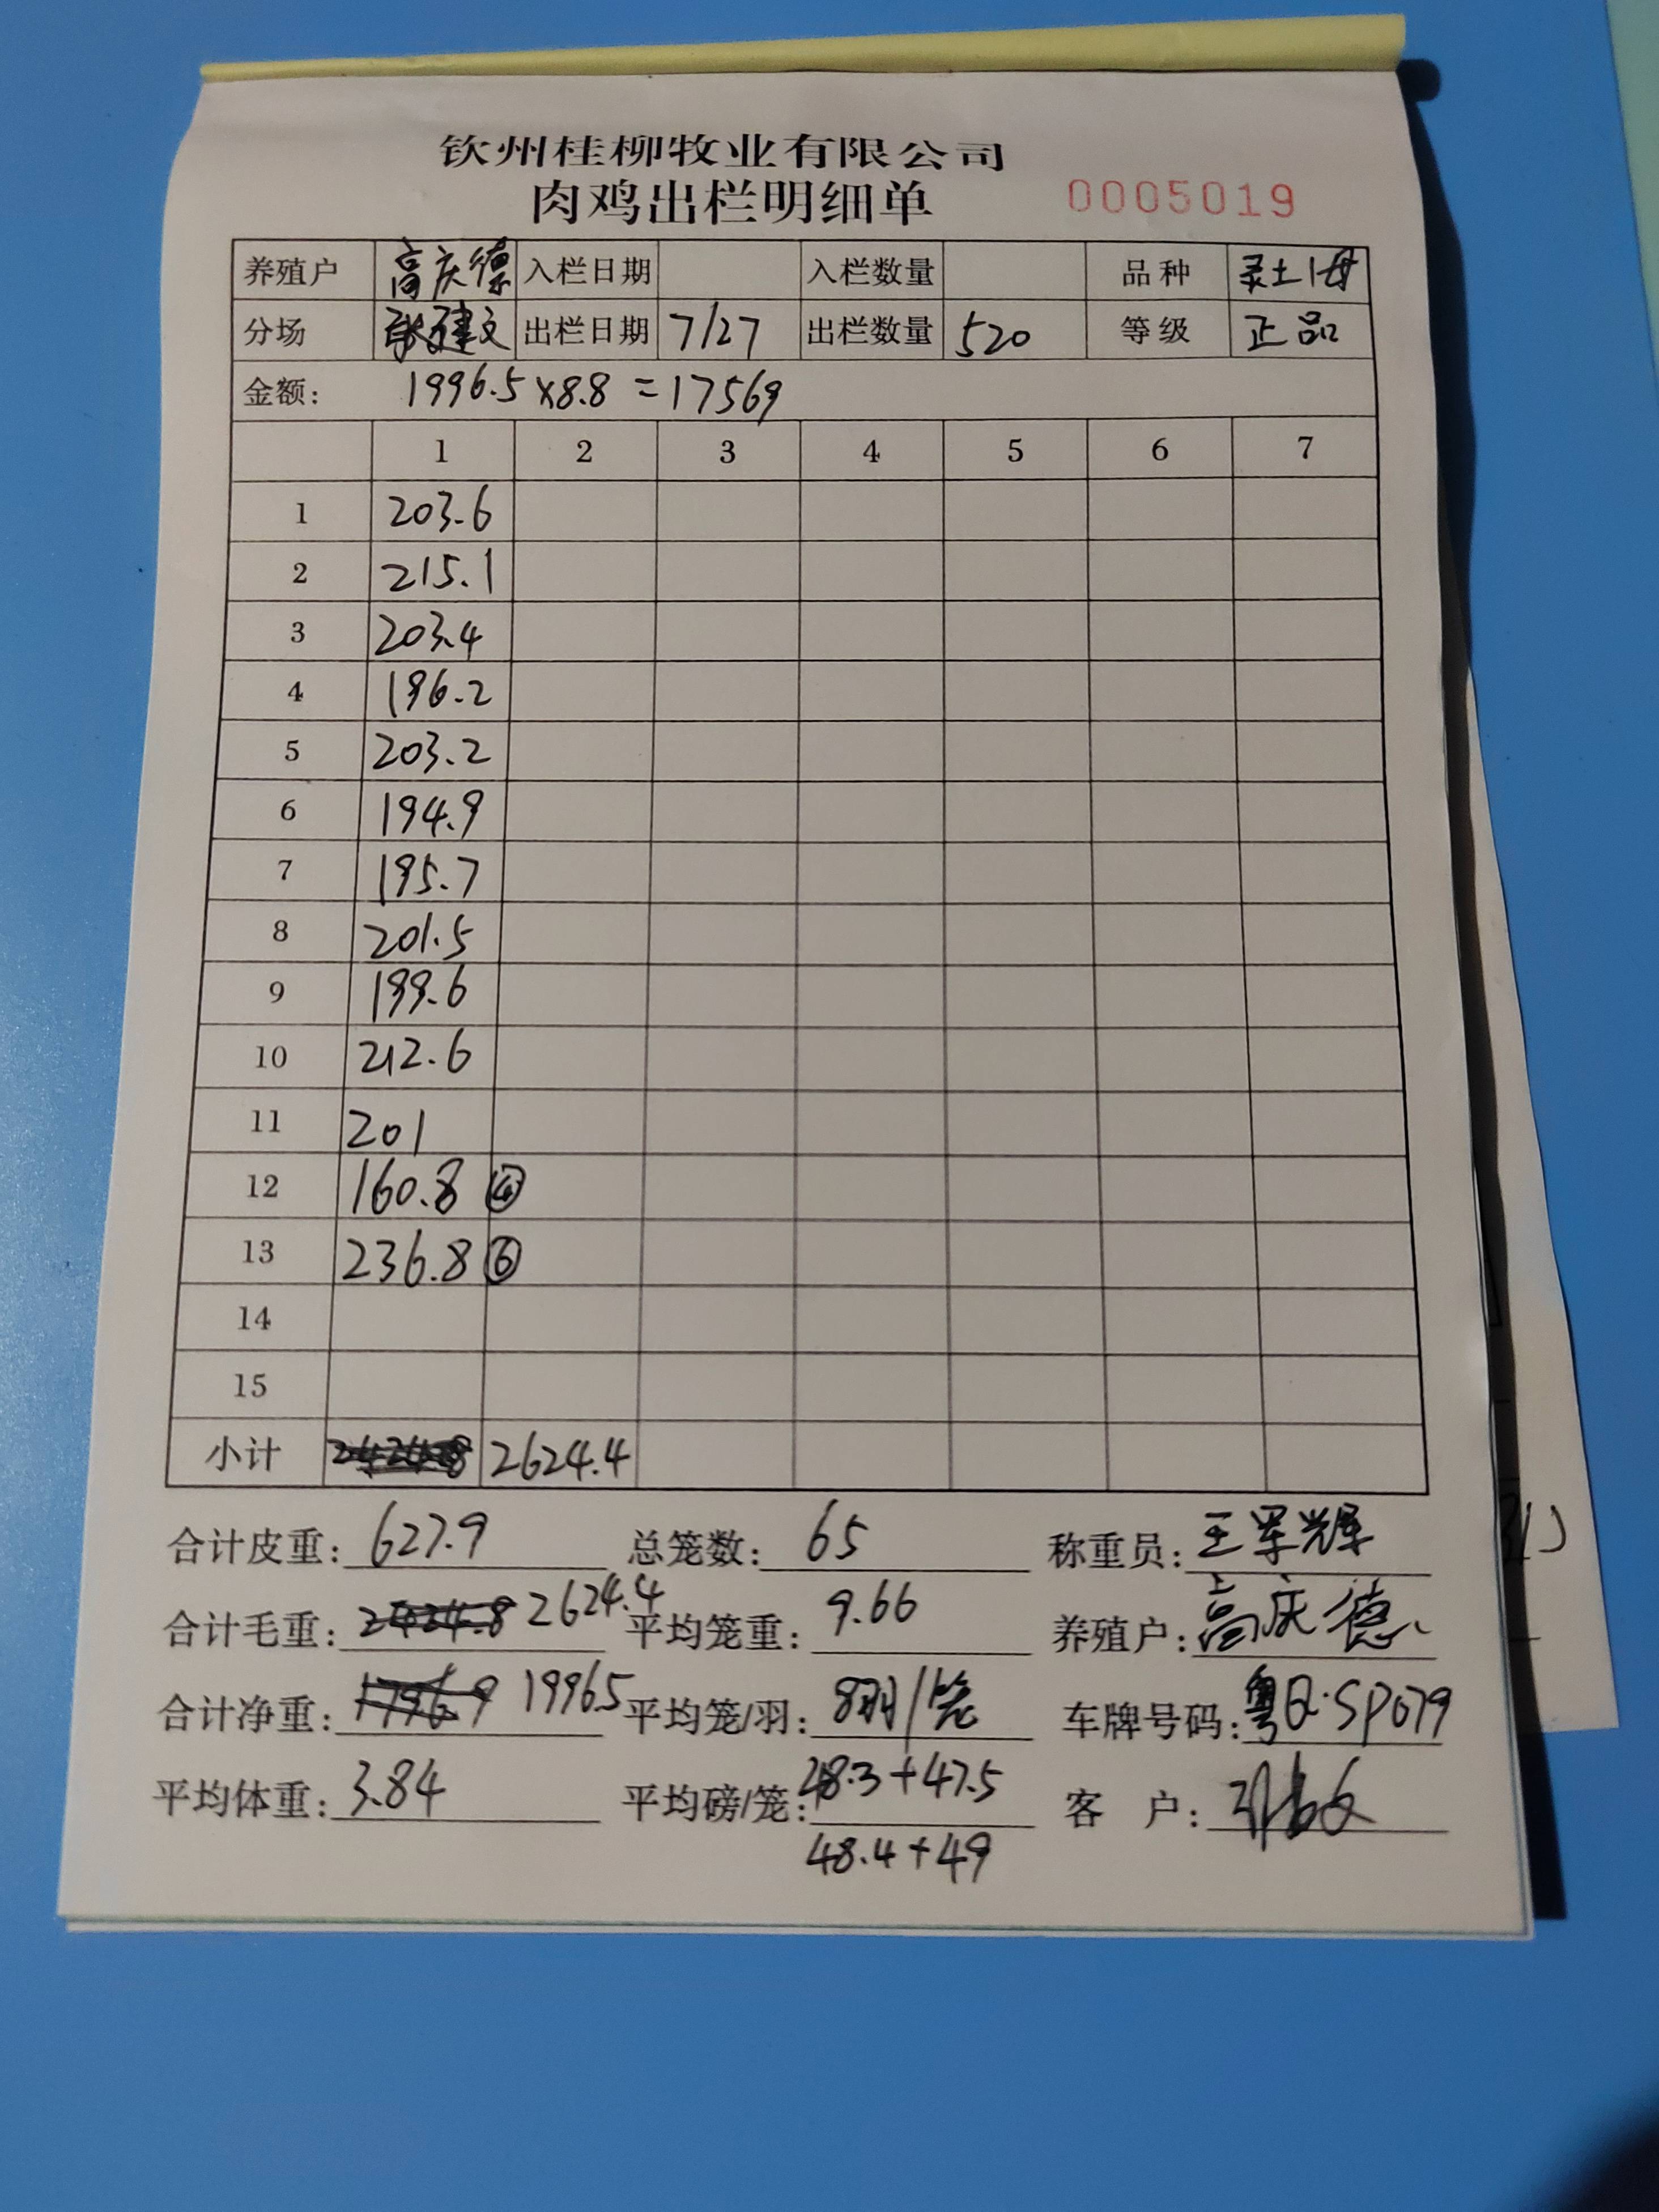 钦州桂柳牧业有限公司
肉鸡出栏明细单 0005019
养殖户 高庆德 入栏日期 入栏数量 品种 灵土1母
分场 建文 出栏日期 7/27 出栏数量 520 等级 正品
金额: 1996.5×8.8=17569
1 2 3 4 5 6 7
1 203.6
2 215.1
3 203.4
4 196.2
5 203.2
6 194.9
7 195.7
8 201.5
9 199.6
10 212.6
11 201
12 160.8 ④
13 236.8 ⑥
14
15
小计 2624.4
合计皮重: 627.9 总笼数: 65 称重员: 王军辉
合计毛重: 2424.8 2624.4 平均笼重: 9.66 养殖户: 高庆德
合计净重: 1796.9 1996.5 平均笼/羽: 8羽/笼 车牌号码: 粤Q·SP079
平均体重: 3.84 平均磅/笼: 48.3+47.5 客户:
48.4+49